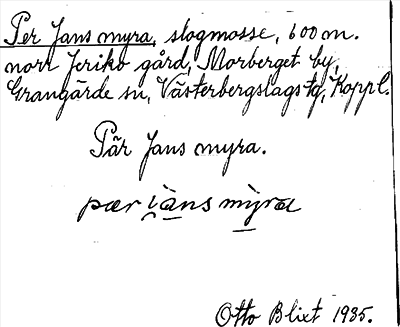 Per Jans myra, slogmosse, 600 m.
norr Jeriko gård, Morberget by,
Grangärde sn, Västerbergslags tg, Koppl.
Pär Jans myra.
pær i̯àns mỳra
Otto Blixt 1935.